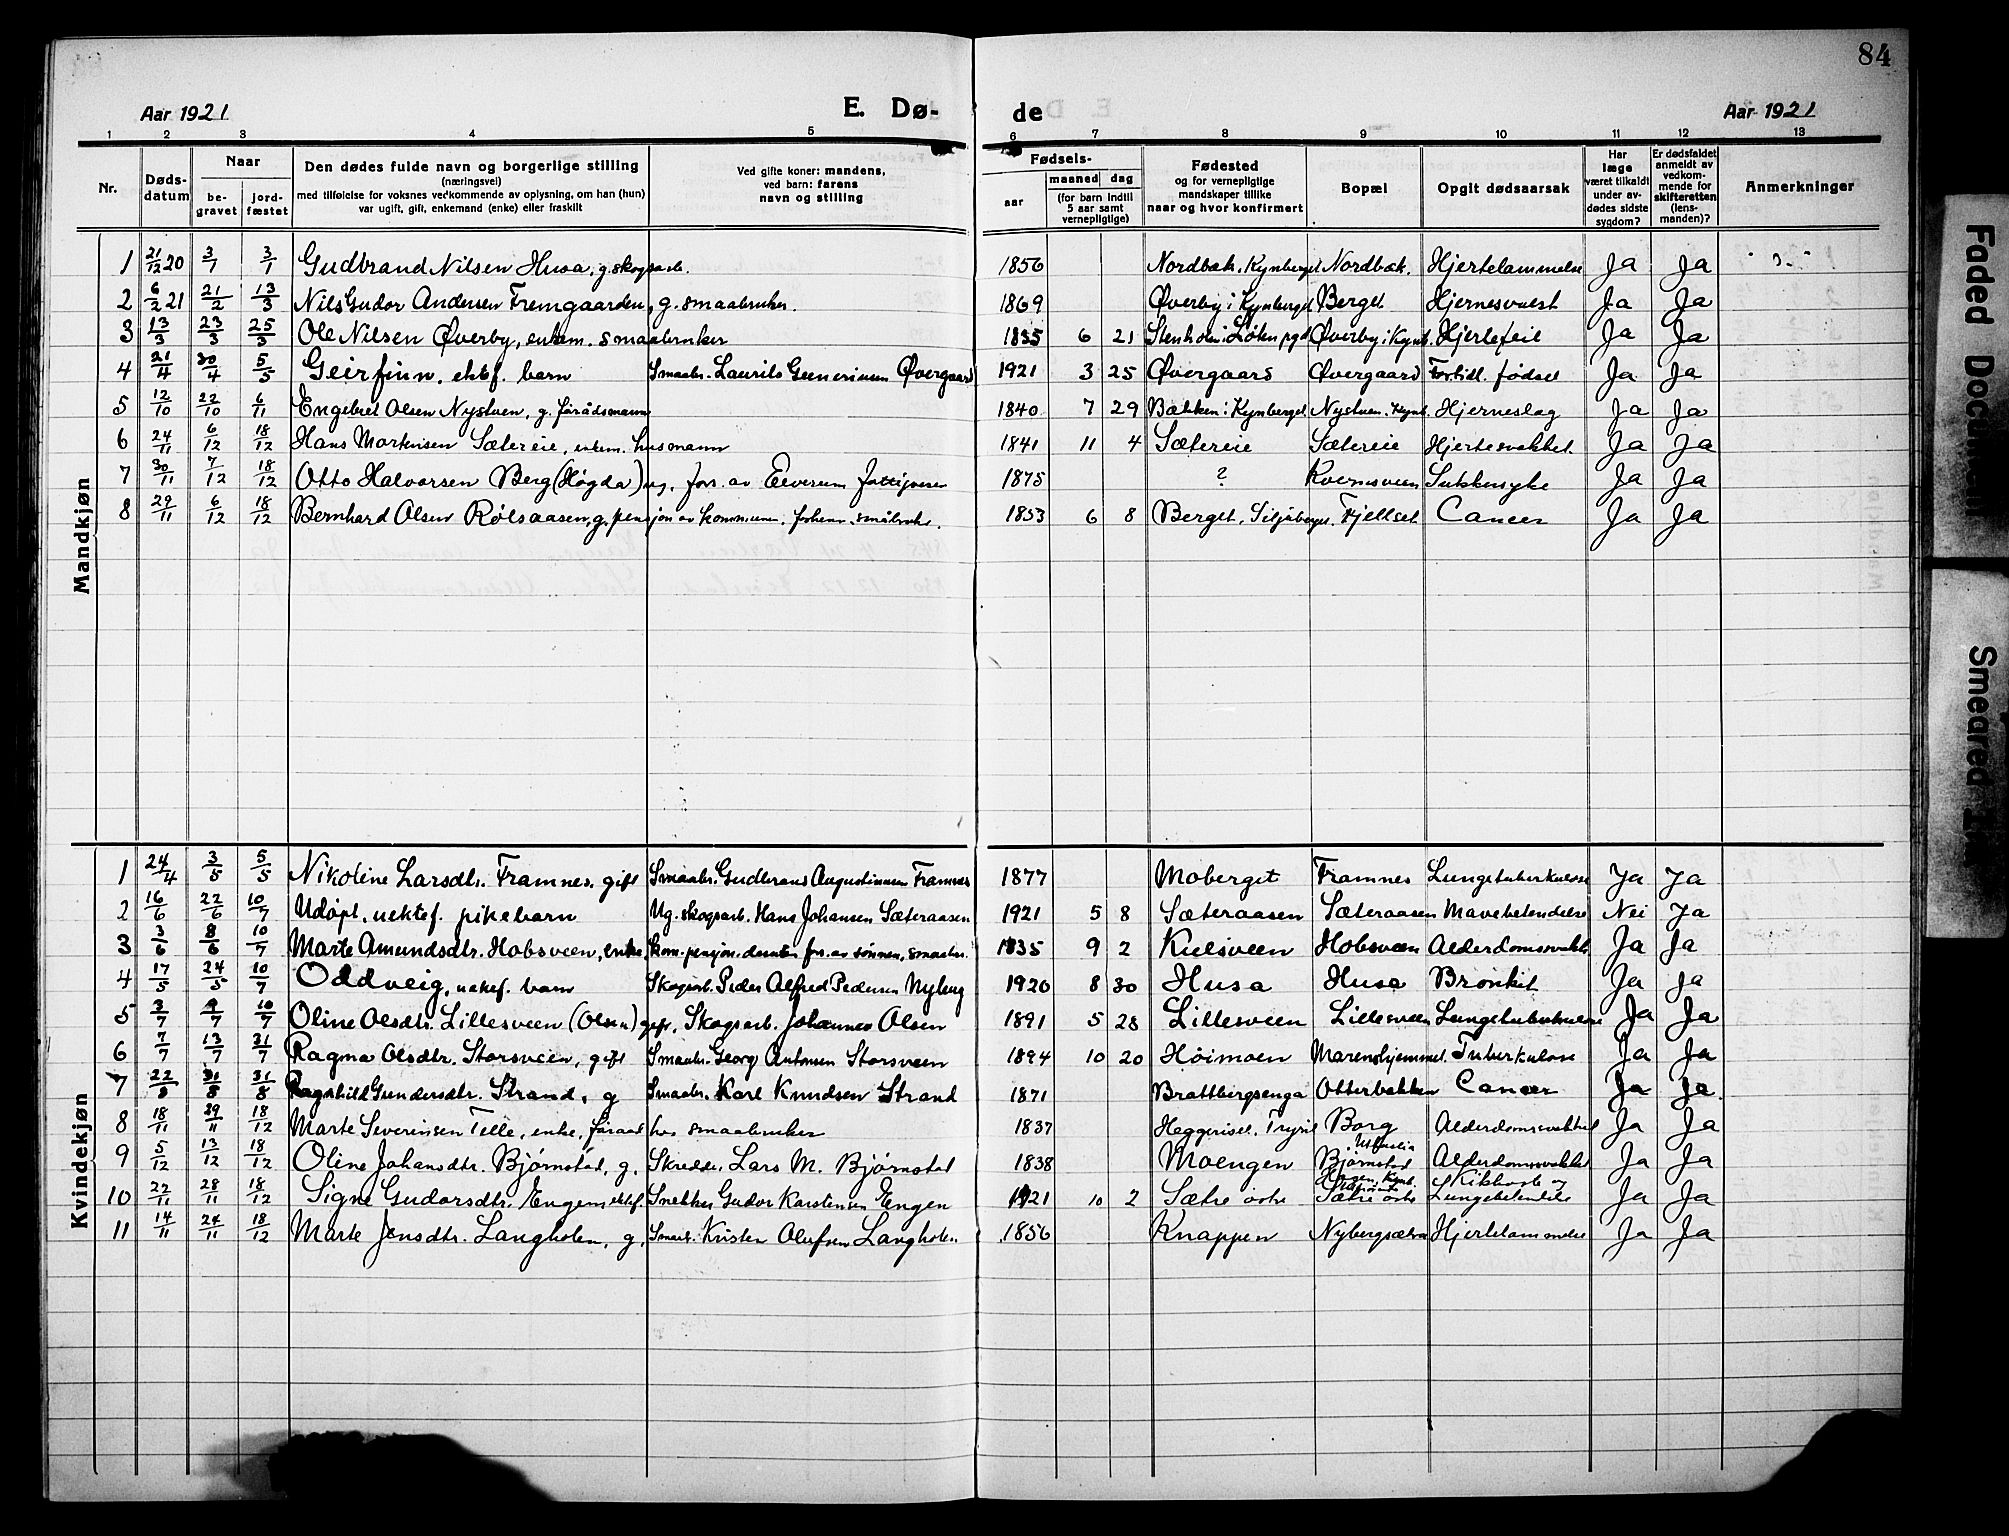 84
Aar 1921 E. Dø- de Aar 1921
1 2 3 4 5 6 7 8 9 10 11 12 13
Nr. Døds-datum Naar be-gravet jord-fæstet Den dødes fulde navn og borgerlige stilling (næringsvei) med tilføielse for voksnes vedkommende av oplysning, om han (hun) var ugift, gift, enkemand (enke) eller fraskilt Ved gifte koner: mandens, ved barn: farens navn og stilling Fødsels- aar maaned dag (for barn indtil 5 aar samt vernepligtige) Fødested og for vernepligtige mandskaper tillike naar og hvor konfirmert Bopæl Opgit dødsaarsak Har læge været tilkaldt under av-dødes sidste sygdom? Er dødsfaldet anmeldt av vedkom-mende for skifteretten (lens-manden)? Anmerkninger
Mandkjøn
1 21/12 20 3/1 3/1 Gudbrand Nilsen Husa, g. skogsarb. 1856 Nordbæk, Kynberget Nordbæk. Hjertelammelse Ja Ja
2 6/2 21 21/2 13/3 Nils Gudor Andersen Fremgaarden, g. smaabruker. 1869 Øverby i Kynberget Berget Hjernesvulst Ja Ja
3 13/3 23/3 25/3 Ole Nilsen Øverby, enkem. smaabruker 1835 6 21 Stenholen i Løten pgd Øverby i Kynb. Hjertefeil Ja Ja
4 21/4 30/4 5/5 Geirfinn, ektef. barn Smaabr. Laurits Gunerius­sen Øvergaard 1921 3 25 Øvergaard Øvergaard For tidl. fødsel Ja Ja
5 12/10 22/10 6/11 Engebret Olsen Nystuen, g. førådsmann 1840 7 29 Bakken i Kynberget Nystuen. Kynb. Hjerneslag Ja Ja
6 24/11 6/12 18/12 Hans Martinsen Sætereie, enkem. husmann 1841 11 4 Sætereie Sætereie Hjertesvakhet. Ja Ja
7 30/11 7/12 18/12 Otto Halvorsen Berg (Høgda) ug. fors. av Elverum fattigvesen 1875 ? Kvernsveen Sukkersyke Ja Ja
8 29/11 6/12 18/12 Bernhard Olsen Rølsaasen, g. pensjon av kommunen, forhenv. småbruker. 1853 6 8 Berget, Siljuberget. Fjellset Cancer Ja Ja
Kvindekjøn
1 24/4 3/5 5/5 Nikoline Larsdtr. Framnes. gift Smaabr. Gudbrand Augustinusen Framnes 1877 Moberget Framnes Lungetuberkulose Ja Ja
2 16/6 22/6 10/7 Udøpt, uektef. pikebarn Ug. skogsarb. Hans Johansen Sæteraasen 1921 5 8 Sæteraasen Sæteraasen Mavebetendelse Nei Ja
3 3/6 8/6 10/7 Marte Amundsdtr. Hobsveen, enke, kom. pensjon. desuten fors. av sønnen, smaabr. 1835 9 2 Kulsveen Hobsveen Alderdomssvakh. Ja Ja
4 17/5 24/5 10/7 Oddveig, uektef. barn Skogsarb. Peder Alfred Pedersen Nyberg 1920 8 30 Husa Husa Bronkit Ja Ja
5 3/7 9/7 10/7 Oline Olsdtr. Lillesveen (Olsen) gift, Skogsarb. Johannes Olsen 1891 5 28 Lillesveen Lillesveen Lungetuberkulose Ja Ja
6 7/7 13/7 31/7 Ragna Olsdtr. Storsveen, gift Smaabr. Georg Antonsen Storsveen 1894 10 20 Høimoen Marenshjemmet. Tuberkulose Ja Ja
7 22/8 31/8 31/8 Ragnhild Gundersdtr. Strand, g Smaabr. Karl Knudsen Strand 1871 Brattbergsenga Otterbekken Cancer Ja Ja.
8 18/11 29/11 18/12 Marte Severinsen Telle, enke, føraad hos smaabruker 1837 Heggeriset. Trysil Borg Alderdomssvakhet Ja Ja
9 5/12 13/12 18/12 Oline Johansdtr. Bjørnstad, g. Skredder Lars M. Bjørnstad 1838 Moengen Bjørnstad Alderdomssvakhet Ja Ja
10 22/11 28/11 18/12 Signe Gudorsdtr. Engen ektef. Snekker Gudor Karstensen Engen 1921 10 2 Sætre østre Sætre østre Kikhoste og Lungebetendelse Ja Ja
11 14/11 24/11 18/12 Marte Jensdtr. Langholen, g. Smaabr. Kristen Olufsen Langholen 1856 Knappen Nybergsætra Hjertelammelse Ja Ja
Faded Document
Smeared Ink